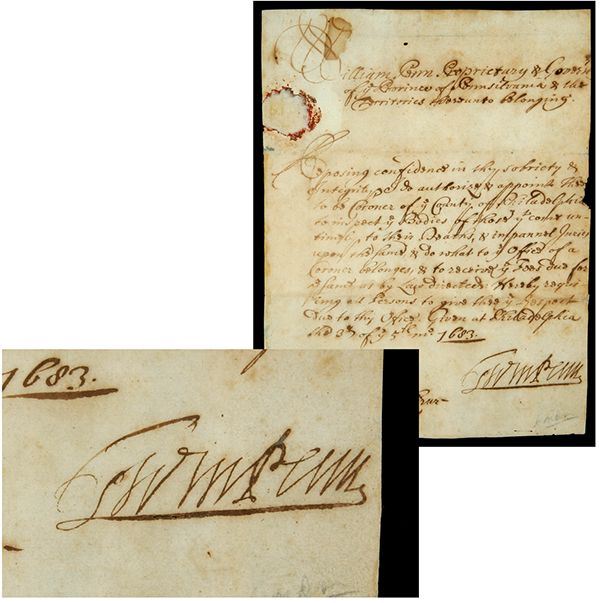 William Penn Proprietary & Govern
of yͤ Province of Pennsilvania & the
Territories thereunto belonging.
Reposing confidence in thy sobriety &
Integrity, I do authorize & appoint thee
to be Coroner of yͤ County of Philadelphia
to inspect yͤ Bodies of those yͭ come un-
timely to their Deaths, & impannel Juries
upon the same & do what to yͤ Office of a
Coroner belonges, & to receive yͤ Fees due for
yͤ same as by Law directed: Hereby requi
ring all Persons to give thee yͤ Respect
Due to thy Office. Given at Philadelphia
the 3ᵈ of yͤ 5ᵗʰ mᵒ 1683.
Wm Penn
1683.
Wm Penn